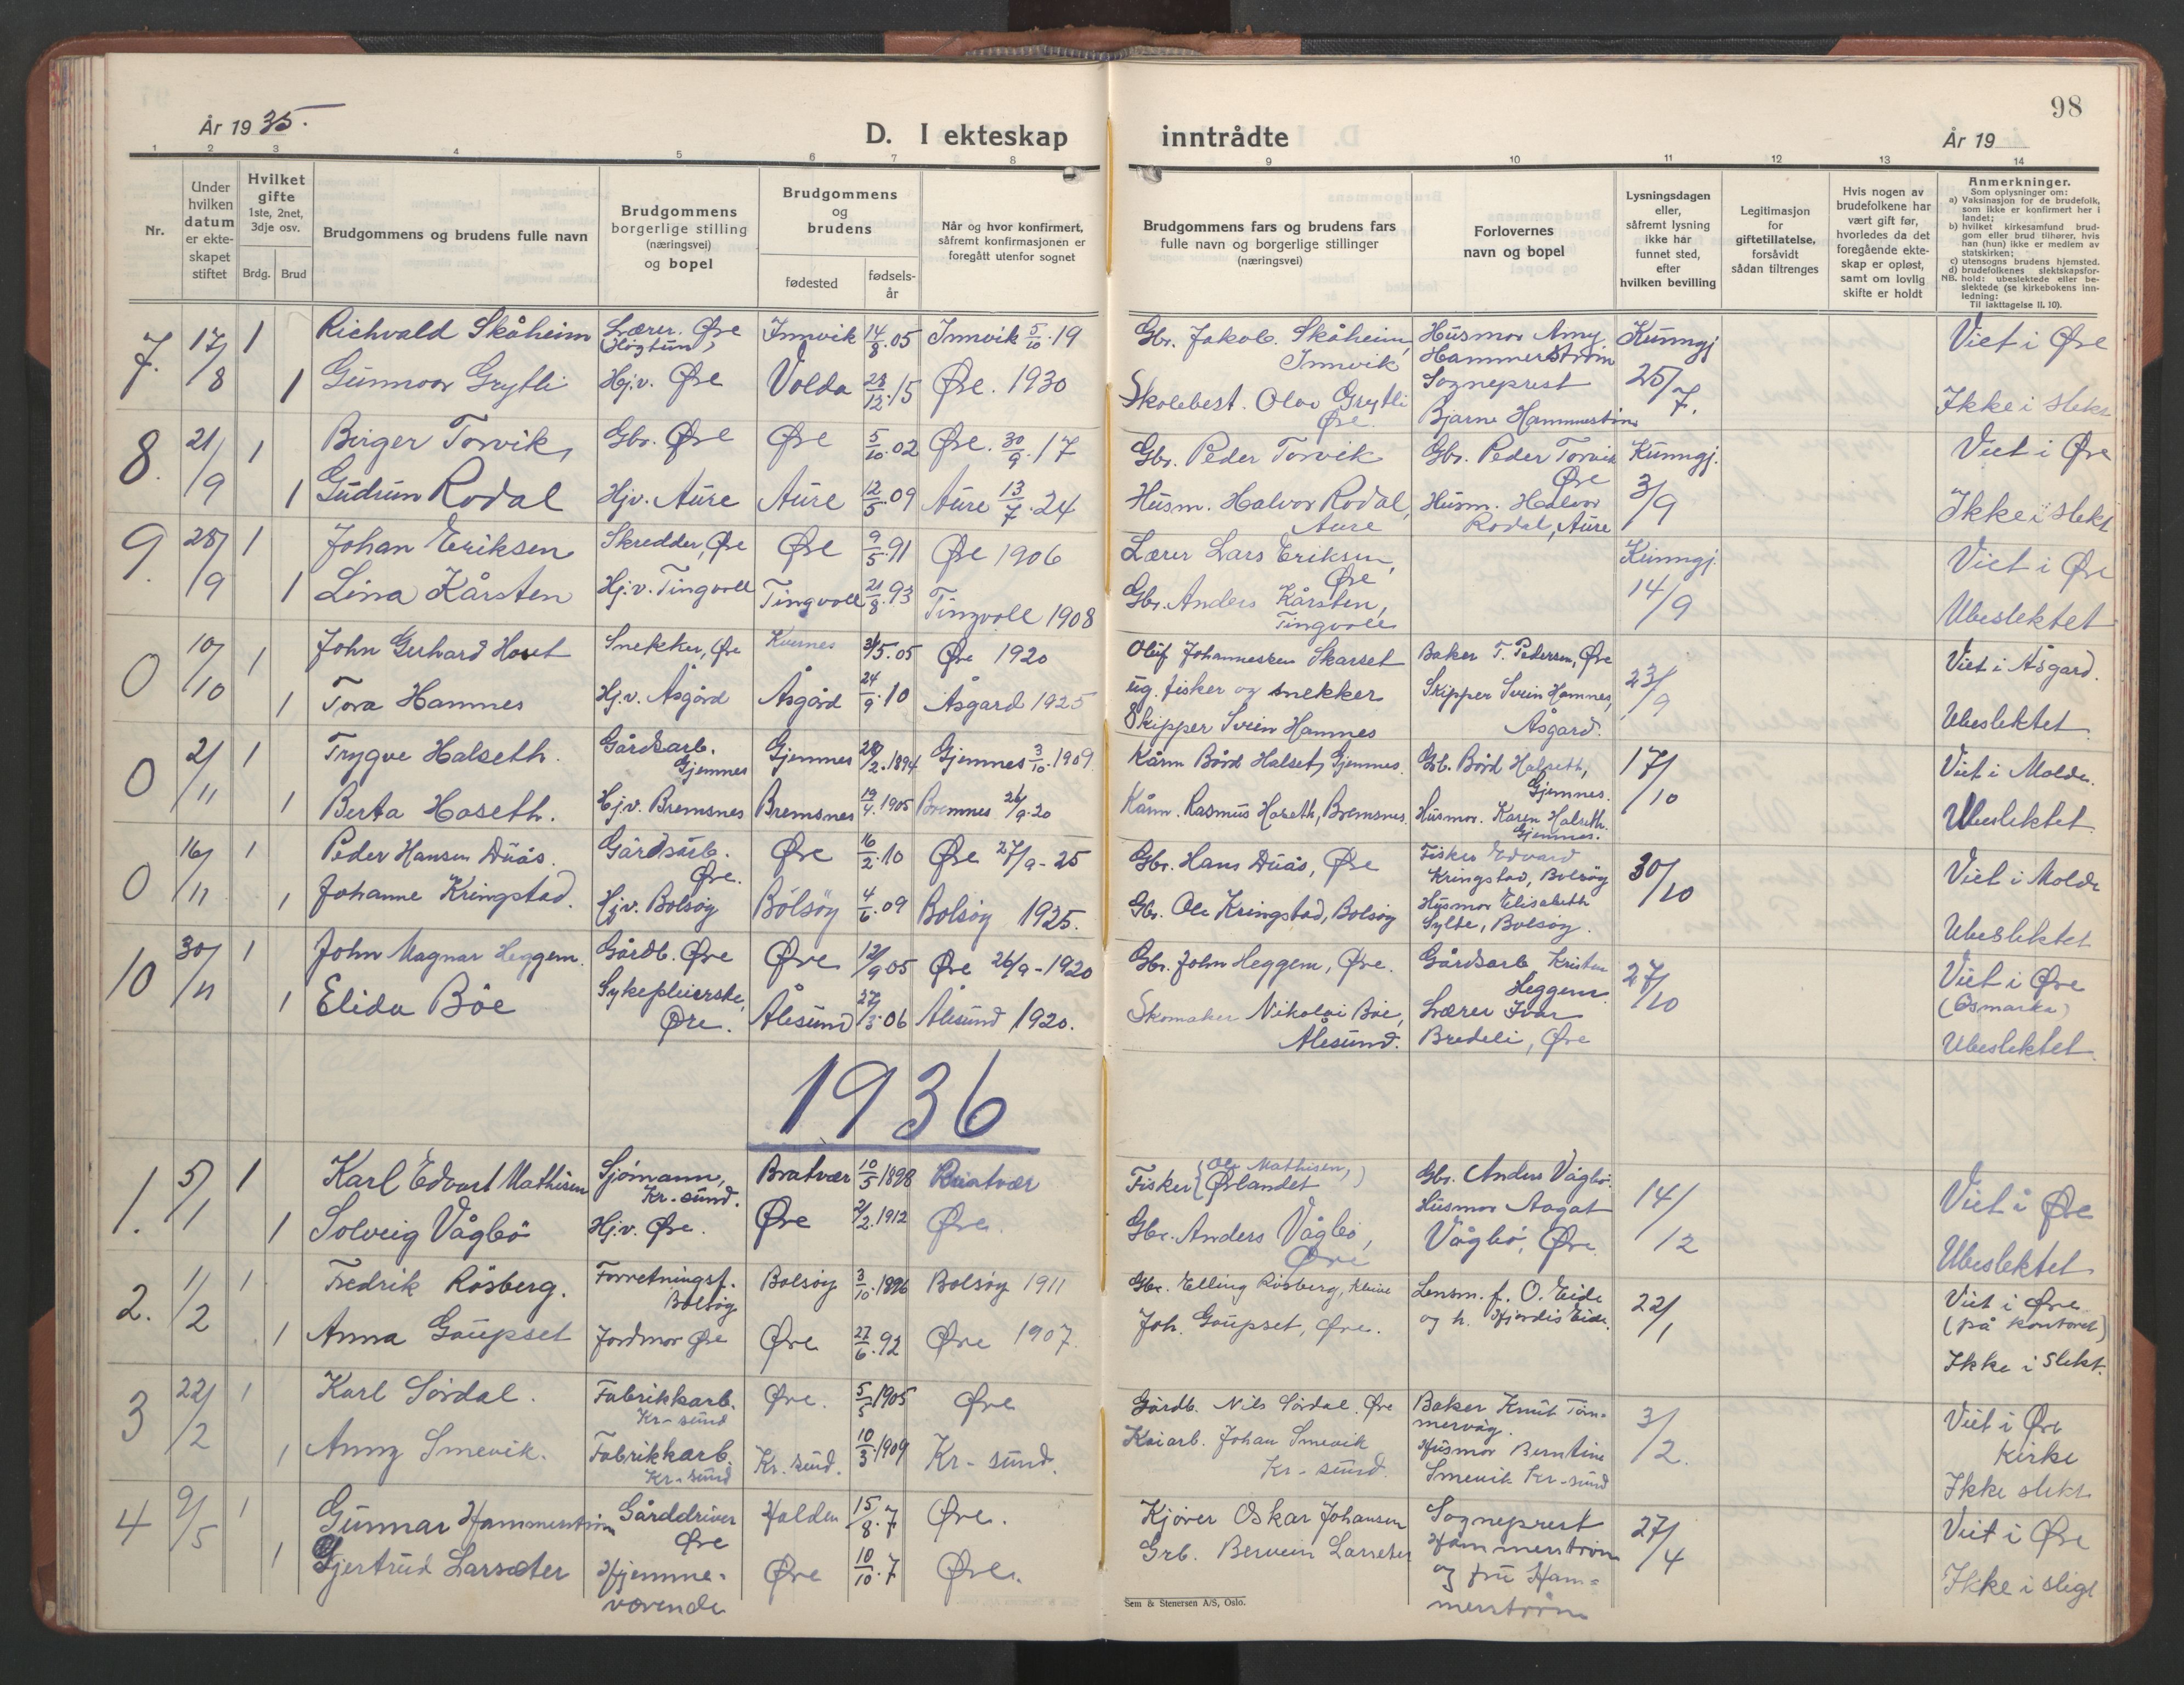 98
År 1935.
D. I ekteskap inntrådte
År 19
1 2 3 4 5 6 7 8 9 10 11 12 13 14
Nr.
Under hvilken datum er ekte-skapet stiftet
Hvilket gifte 1ste, 2net, 3dje osv.
Brdg. Brud
Brudgommens og brudens fulle navn
Brudgommens borgerlige stilling (næringsvei) og bopel
Brudgommens og brudens
fødested
fødsels-år
Når og hvor konfirmert, såfremt konfirmasjonen er foregått utenfor sognet
Brudgommens fars og brudens fars fulle navn og borgerlige stillinger (næringsvei)
Forlovernes navn og bopel
Lysningsdagen eller, såfremt lysning ikke har funnet sted, efter hvilken bevilling
Legitimasjon for giftetillatelse, forsåvidt sådan tiltrenges
Hvis nogen av brudefolkene har vært gift før, hvorledes da det foregående ekte-skap er opløst, samt om lovlig skifte er holdt
Anmerkninger.
Som oplysninger om:
a) Vaksinasjon for de brudefolk, som ikke er konfirmert her i landet;
b) hvilket kirkesamfund brud-gom eller brud tilhører, hvis han (hun) ikke er medlem av statskirken;
c) utensogns brudens hjemsted.
d) brudefolkenes slektskapsfor-hold: ubeslektede eller be-slektede (se kirkebokens inn-ledning:
NB.
Til iakttagelse II. 10).
7. 17/8 1 Richvald Skåheim Lærer. Øre (Høgtun) Innvik 14/8.05 Innvik 5/10.19 Gbr. Jakob. Skåheim, Innvik Husmor Amy Hammerstrøm Kunngj Viet i Øre
1 Gunnvor Grytli Hj.v. Øre Volda 28/12.15 Øre. 1930 Skolebest. Olav Grytli Øre. Sogneprest Bjarne Hammerstrøm 25/7. Ikke i slekt
8. 21/9 1 Birger Torvik, Gbr. Øre Øre 5/10.02 Øre. 30/9.17 Gbr. Peder Torvik Gbr. Peder Torvik Øre Kunngj. Viet i Øre
1 Gudrun Rodal Hj.v. Aure Aure 12/5.09 Aure 13/7.24 Husm. Halvor Rodal, Aure Husm. Halvor Rodal, Aure 3/9 Ikke i slekt
9. 28/9 1 Johan Eriksen Skredder, Øre Øre 9/5.91 Øre 1906 Lærer Lars Eriksen, Øre Kunngj. Viet i Øre
1 Lina Kårsten Hj.v. Tingvoll Tingvoll 21/8.93 Tingvoll 1908 Gbr. Anders Kårsten, Tingvoll 14/9 Ubeslektet
0 10/10 1 John Gerhard Hoset Snekker, Øre Kvernes 31/5.05 Øre 1920 Oluf Johannessen Skarset Baker T. Pedersen, Øre Viet i Åsgard.
1 Tora Hamnes Hj.v. Åsgård Åsgård 24/9.10 Åsgard 1925 ug. fisker og snekker Skipper Svein Hamnes Skipper Svein Hamnes, Åsgard. 23/9 Ubeslektet
0 2/11 1 Trygve Halseth. Gårdsarb. Gjemnes Gjemnes 28/2.1894 Gjemnes 3/10.1909 Kårm Bård Halset, Gjemnes. Gb. Bård Halseth, Gjemnes. 17/10 Viet i Molde.
1 Berta Hoseth. Hj.v. Bremsnes Bremsnes 19/4.1905 Bremnes 26/9.20 Kårm. Rasmus Hoseth, Bremsnes. Husmor. Karen Halseth. Gjemnes. Ubeslektet
0 16/11 1 Peder Hansen Duås. Gårdsarb. Øre. Øre 16/2.10 Øre 27/9-25 Gbr. Hans Duås, Øre Fisker Edvard Kringstad, Bolsøy 30/10 Viet i Molde
1 Johanne Kringstad. Hj.v. Bolsøy Bolsøy 4/6.09 Bolsøy 1925. Gbr. Ole Kringstad, Bolsøy Husmor Elisabeth Sylte, Bolsøy. Ubeslektet
10 30/11 1 John Magnar Heggem. Gårdb. Øre Øre 12/9.05 Øre 26/9-1920 Gbr. John Heggem, Øre. Gårdsarb Kristen Heggem 27/10 Viet i Øre (Osmarka)
1 Elida Böe Sykepleierske, Øre. Ålesund 27/3.06 Ålesund 1920. Skomaker Nikolai Böe, Ålesund. Lærer Ivar Bredeli, Øre Ubeslektet
1936
1. 5/1 1 Karl Edvart Mathisen Sjömann, Kr.-sund. Bratvær 10/5 1898 Bratvær Fisker (Ole Mathisen,) Ørlandet Gbr. Anders Vågbö. 14/12 Viet i Øre
1 Solveig Vågbö Hj.v. Øre. Øre 2/2.1912 Øre. Gbr. Anders Vågbö, Øre Husmor Aagat Vågbö, Øre. Ubeslektet
2. 1/2 1 Fredrik Rösberg. Forretningsf. Bolsöy Bolsöy 3/10.1896 Bolsöy 1911 Gbr. Elling Rösberg, Kleive Lensm. f. O. Eide og h. Hjördis Eide. 22/1 Viet i Øre (på kontoret)
1 Anna Gaupset Jordmor Øre Øre 27/6.92 Øre 1907. Joh. Gaupset, Øre. Ikke i slekt.
3 22/2 1 Karl Sördal. Fabrikkarb. Kr-sund Øre. 5/5 1905 Øre Gårdb. Nils Sördal. Øre Baker Knut Töm-mervåg. 3/2. Viet i Øre Kirke
1 Anny Smevik. Fabrikkarb. Kr-sund Kr. sund. 10/3.1909 Kr-sund. Kaiarb. Johan Smevik Kr-sund. Husmor Berntine Smevik Kr-sund Ikke slekt
4 9/5 1 Gunnar Hammerström Gårddriver Øre Halden 15/8.7 Øre. Kjörer Oskar Johansen Sogneprest Hammerström 27/4 Viet i Øre
1 Gjertrud Larsæter Hjemme-værende Øre 10/10.7 Øre. Grb. Larseter og fru Ham-merström Ikke i sligt
Sem & Stenersen A/S, Oslo.